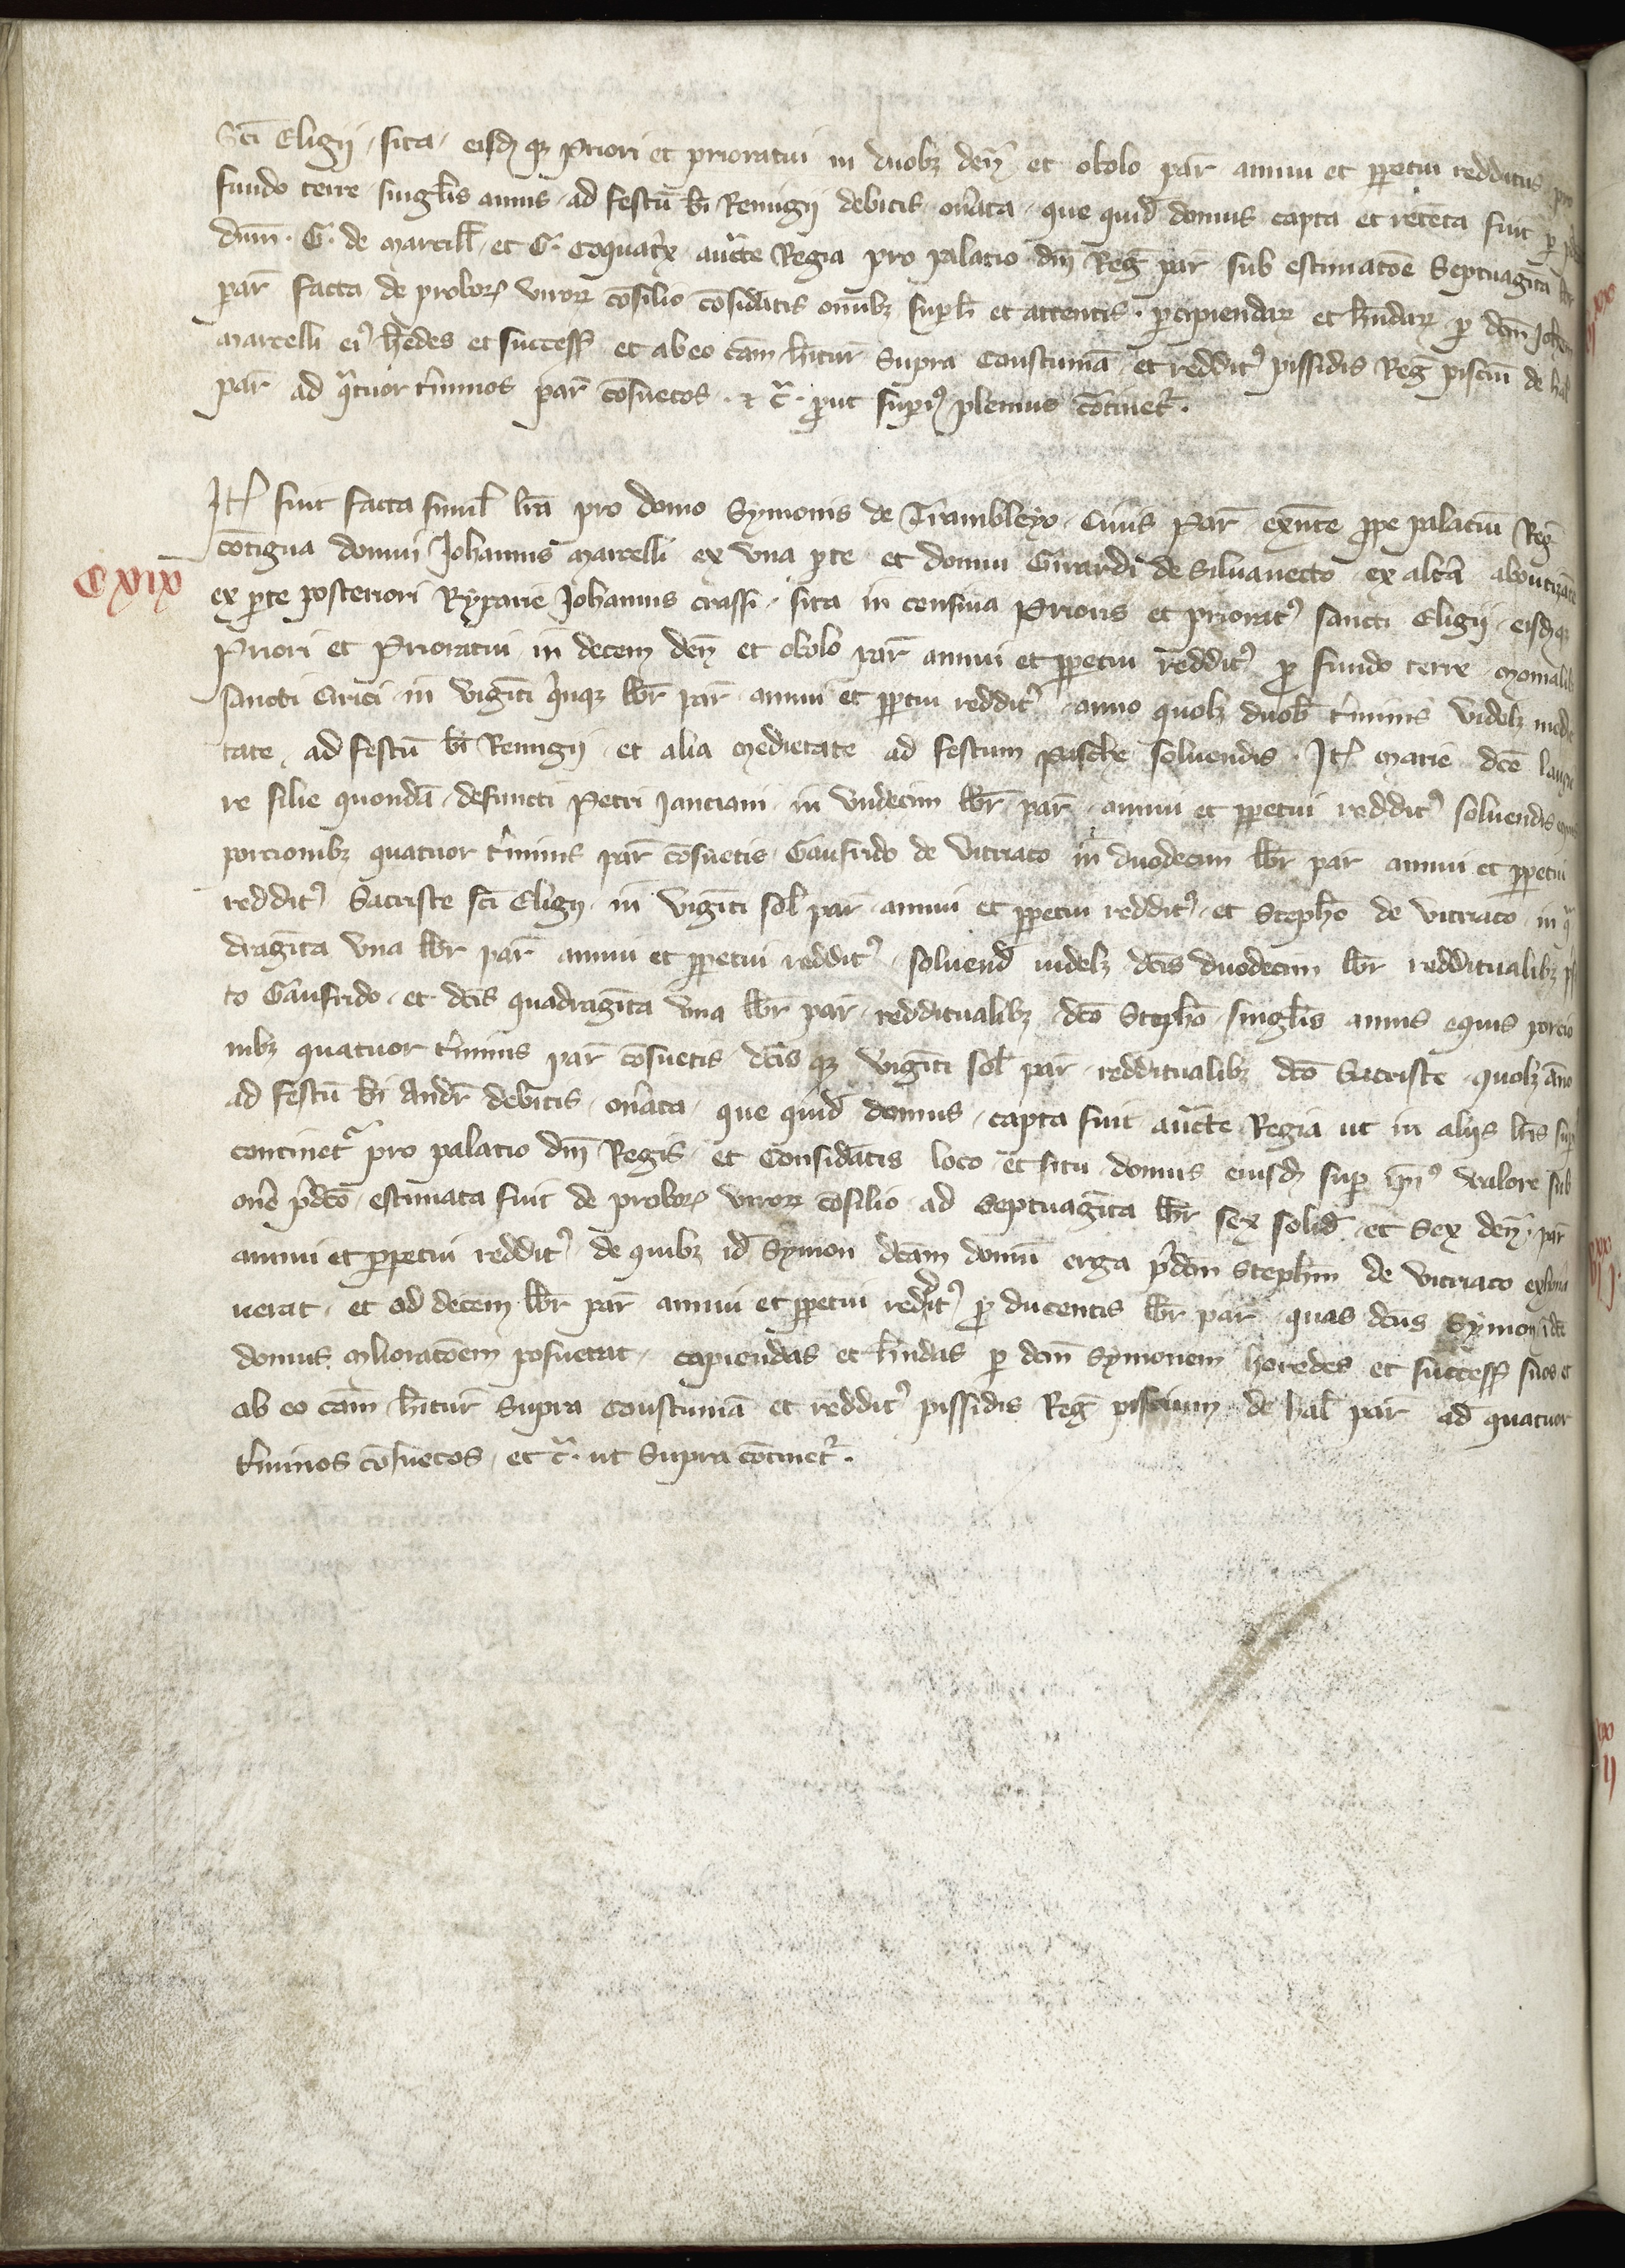 Sci Eligij, sita, eisdꝫ qꝫ Priori et prioratui in duobꝫ den̄ et obolo par̄ annui et ꝑpetui redditus pro
fundo terre singl̄is annis ad festū bī Remigij debitis on̄ata que quid̄ domus capta et retēta fuit ꝑ
dnm̄. G. de marcill̄ et G. Coquatͥx auc̄te Regia pro palatio dnī Reḡ par̄ sub estimatōe Septuagīta
par̄ facta de proborꝝ virorꝝ cōsilio cōsid̄atis om̄ibꝫ suprͣ et attentis. ꝑcipiendarꝝ et hn̄darꝝ ꝑ dcm̄ Joh̄em
marcelli eiꝰ h̄edes et successꝭ et ab eo cām hn̄tur̄ Supra Constumā et redditꝰ pissidis Reḡ pisciū de hal̄
par̄ ad qͣtuor t̄minos par̄ cōsuetos. ⁊ c̄. ꝓut suꝑiꝰ plenius cōtinet᷑.
Itꝭ fuit facta simil̄ lrā pro domo Symonis de Trambleyo Ciuis Par̄ exn̄te ꝓpe palatiū Reḡ
cōtigua domui Johannis marcelli ex vna ꝑte et domui Girardi de Siluanecto ex alt̄a aboutizāte
Cxix
ex ꝑte posteriori Ryparie Johannis crassi, sita in censiua Prioris et prioratꝰ sancti Eligij eisdꝫ qꝫ
Priori et Prioratui in decem den̄ et obolo par̄ annui et ꝑpetui redditꝰ ꝓ fundo terre monialibꝫ
sancti Cirici in viginti qͥnqꝫ libr̄ par̄ annui et ꝑpetui redditꝰ anno quolꝫ duobꝫ t̄minis videlꝫ medie
tate ad festū bī Remigij et alia medietate ad festum Pasche soluendis. Itꝭ marie dcē
re filie quondā defuncti Petri Janciani in vndecim libr̄ par̄ annui et ꝑpetui redditꝰ soluendis
porcionibꝫ quatuor t̄minis par̄ cōsuetis Gaufrido de vitriaco in duodecim libr̄ par annui et ꝑpetui
redditꝰ Sacriste sc̄i Eligij in viginti sol̄ par̄ annui et ꝑpetui redditꝰ et Steph̄o de vitriaco in qͣ
draginta vna libr̄ par̄ annui et ꝑpetui redditꝰ soluend̄ videlꝫ dcīs duodecim libr̄ redditualibꝫ
to Gaufrido et dcīs quadraginta vna libr̄ par̄ redditualibꝫ dcō Steph̄o singl̄is annis equis porcio
nibꝫ quatuor t̄minis par̄ cōsuetis dcīs qꝫ viginti sol̄ par̄ redditualibꝫ dcō Sacriste quolꝫ āno
ad festū bī Andr̄ debitis on̄ata que quid̄ domus capta fuit auc̄te Regia ut in alijs lrīs
continet᷑ pro palatio dnī Regis et Consid̄atis loco et situ domus eiusdꝫ suꝑ ip̄iꝰ valore sub
on̄e p̄dcō estimata fuit de proborꝝ virorꝝ cōsilio ad Septuaginta libr̄ sex solid̄ et Sex den̄ par̄
annui et ꝑpetui redditꝰ de quibꝫ id̄ Symon dcām domū erga p̄dcm̄ Steph̄m de vitriaco
uerat et ad decem libr̄ par̄ annui et ꝑpetui redditꝰ ꝓ ducentis libr̄ par̄ quas dcūs Symon
domus melioratōem posuerat capiendas et hn̄das ꝑ dcm̄ Symonem heredes et successꝭ suos et
ab eo cām hn̄tur̄ Supra Constumā et redditꝰ pissidis Reḡ piscium de hal̄ par̄ ad quatuor
t̄minos cōsuetos, et c̄. ut Supra cōtinet᷑.